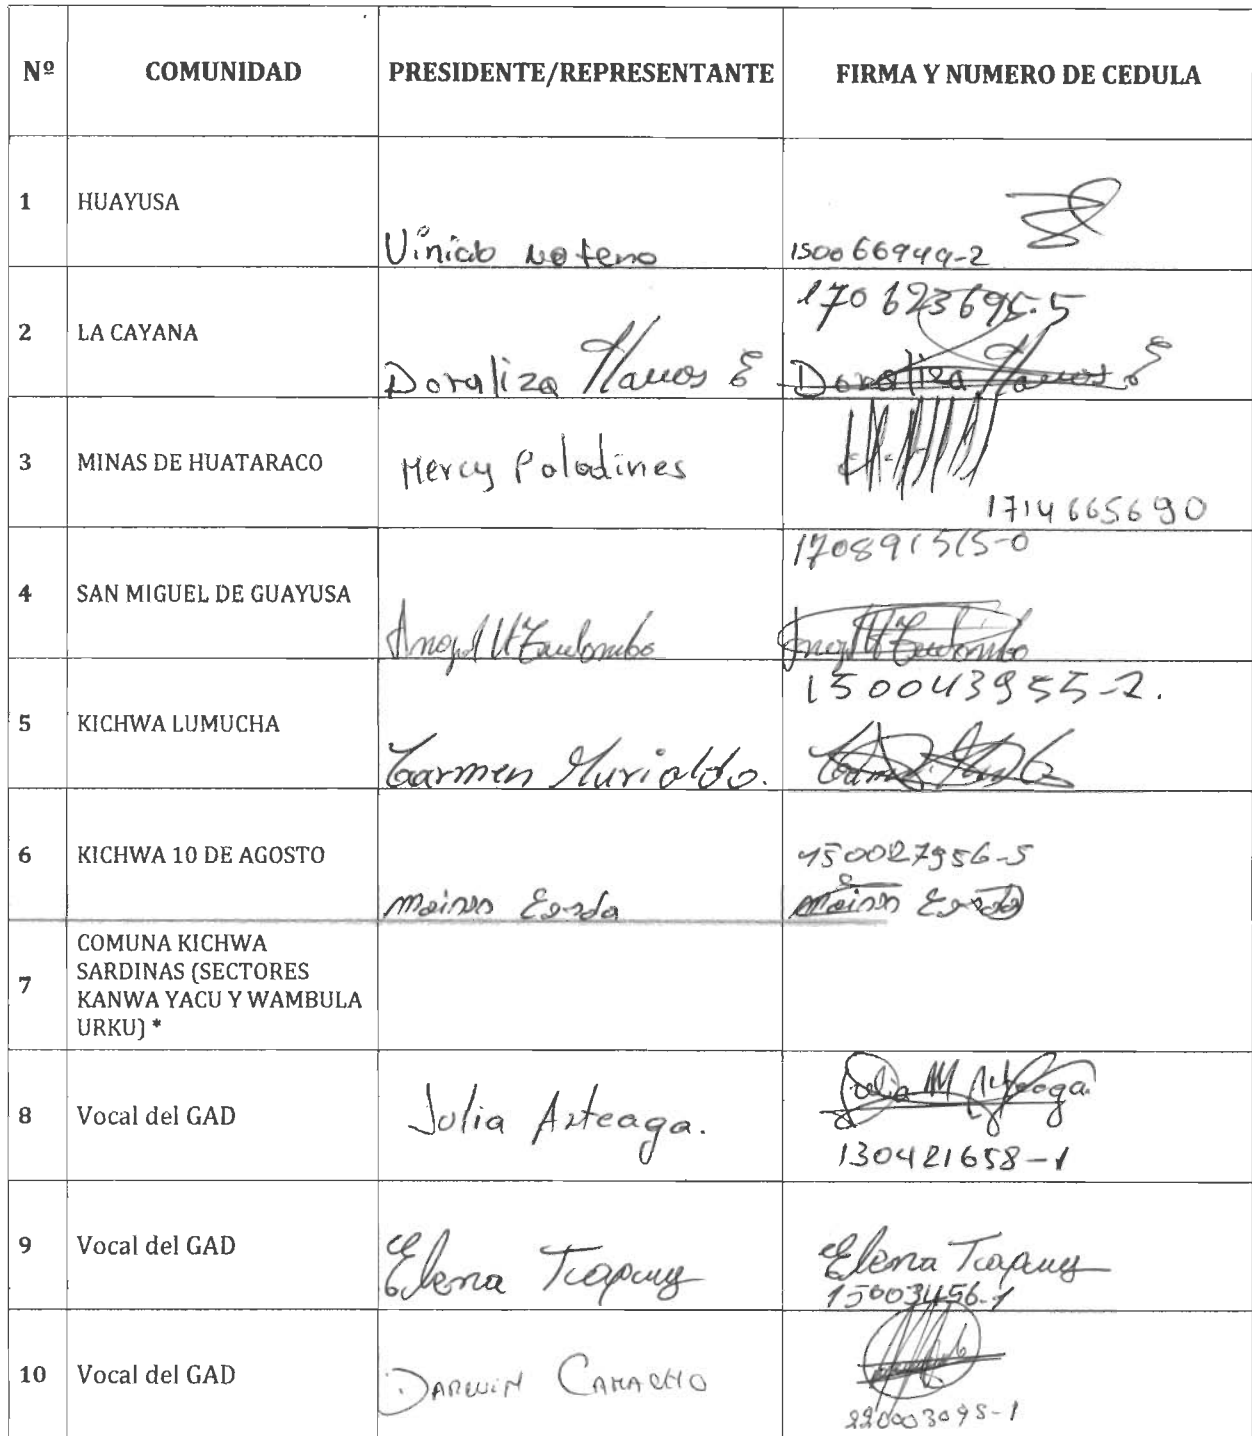 Nº COMUNIDAD PRESIDENTE/REPRESENTANTE FIRMA Y NUMERO DE CEDULA
1 HUAYUSA
150066949-2
2 LA CAYANA Doraliza Llanos E
170623695-5
Doraliza Llanos E
3 MINAS DE HUATARACO Mercy Paladines
1714665690
4 SAN MIGUEL DE GUAYUSA Angel
170891515-0
5 KICHWA LUMUCHA Carmen Murialdo.
150043955-2.
6 KICHWA 10 DE AGOSTO
150027956-5
7 COMUNA KICHWA
SARDINAS (SECTORES
KANWA YACU Y WAMBULA
URKU) *
8 Vocal del GAD Julia Arteaga.
Julia M Arteaga
130421658-1
9 Vocal del GAD Elena Tapuy
Elena Tapuy
15003456-1
10 Vocal del GAD DARWIN CAMACHO
220003095-1